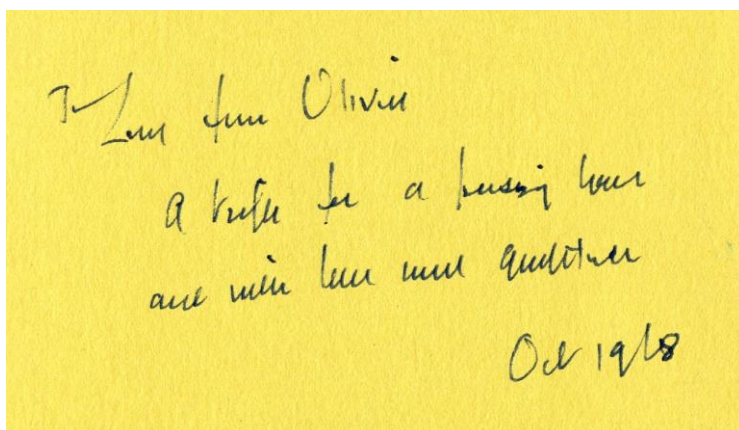 from
A trifle for a passing hour
and with love and gratitude
Oct 1968